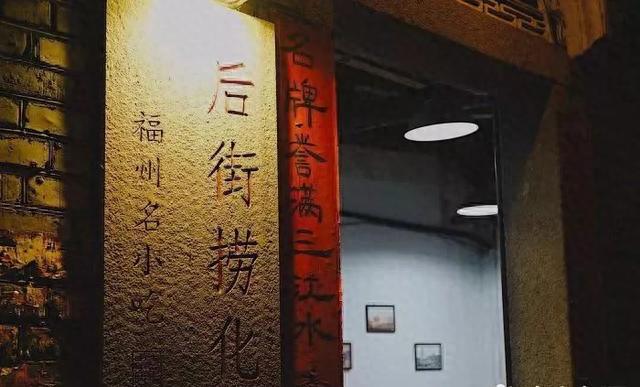 名牌誉满三江水
后街捞化
福州名小吃